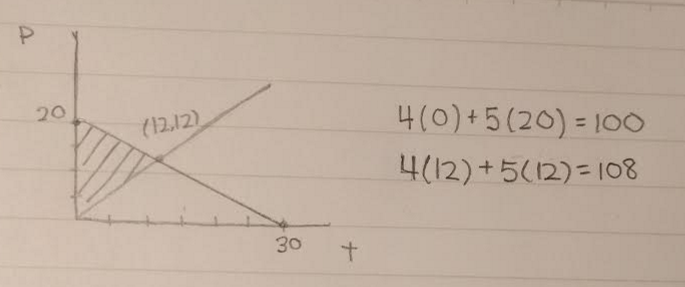 P
20
(12,12)
30
t
4(0)+5(20)=100
4(12)+5(12)=108